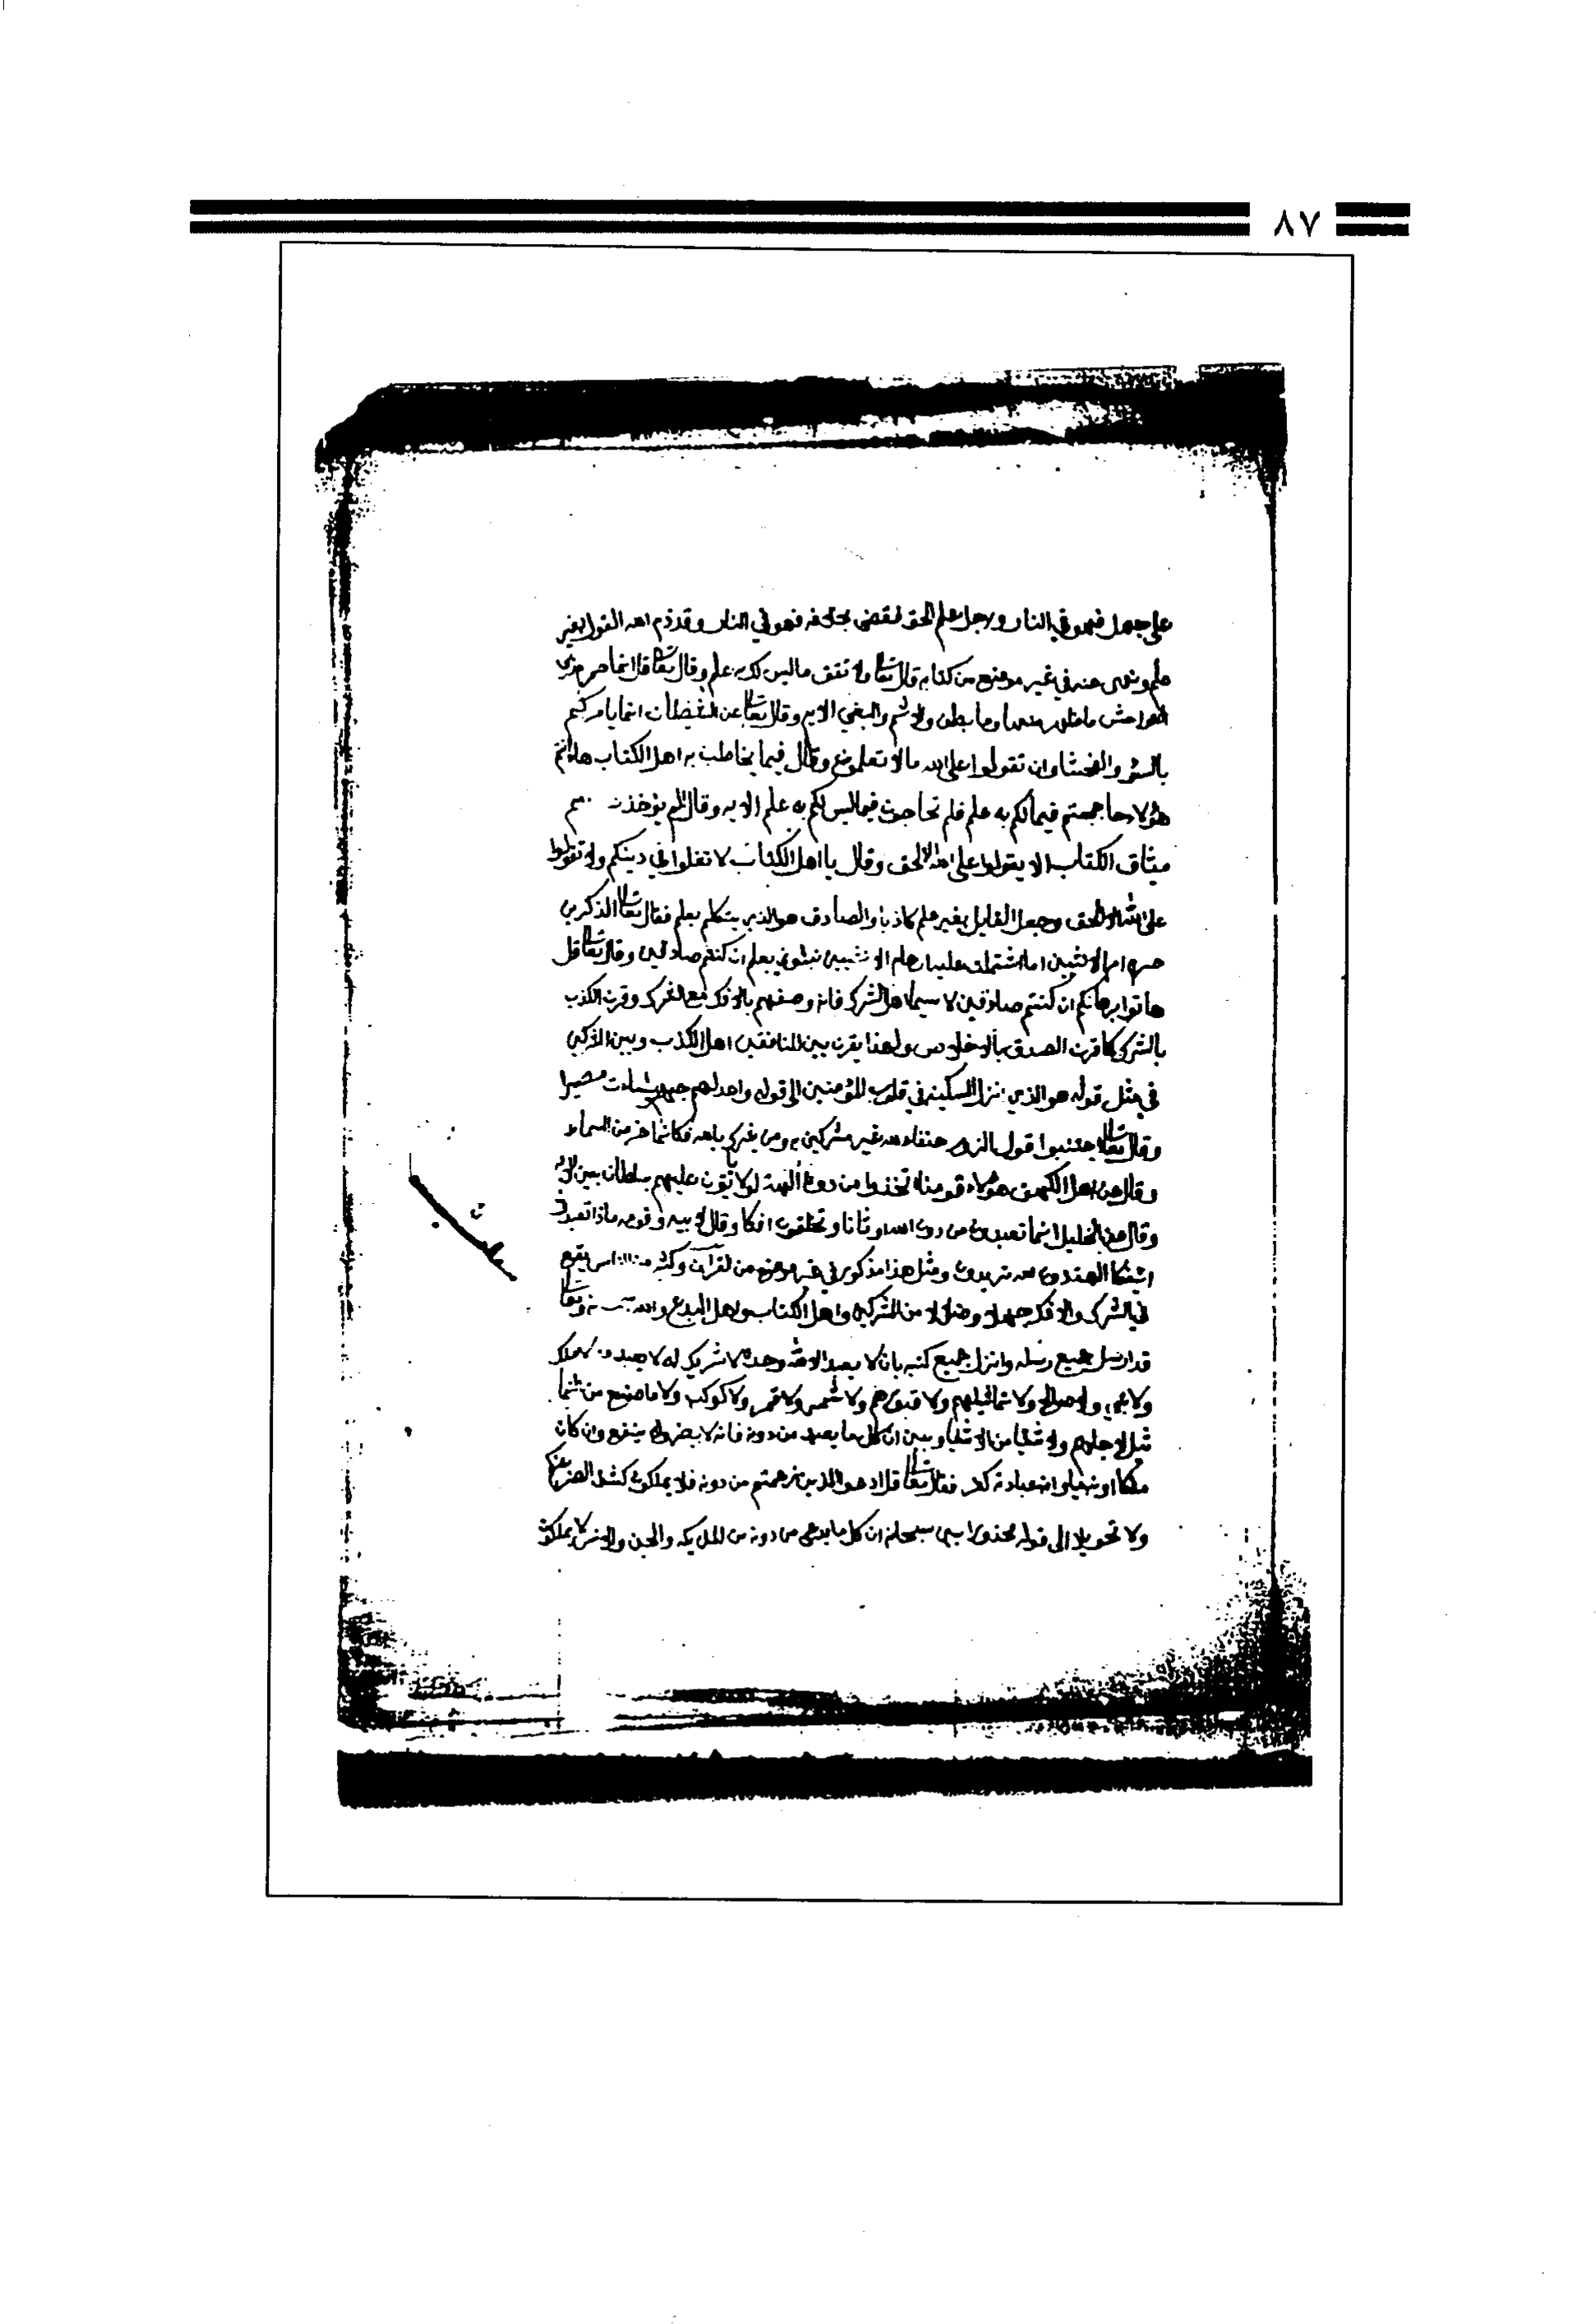 ٨٧
على جهل فهو في النار ورجل علم الحق فقضى بخلافه فهو في النار وقد ذم الله القول بغير
علم ونهى عنه في غير موضع من كتابه قال تعالى ولا تقف ما ليس لك به علم وقال تعالى قل انما حرم ربي
الفواحش ما ظهر منها وما بطن والاثم والبغي الايه وقال تعالى عن الشيطان انما يامركم
بالسوء والفحشا وان تقولوا على الله مالا تعلمون وقال فيما يخاطب به اهل الكتاب ها انتم
هؤلاء حاججتم فيما لكم به علم فلم تحاجون فيما ليس لكم به علم الايه وقال الم يؤخذ عليهم
ميثاق الكتاب الا يقولوا على الله الا الحق وقال يا اهل الكتاب لا تغلوا في دينكم ولا تقولوا
على الله الا الحق وجعل القايل بغير علم كاذبا والصادق هو الذي يتكلم بعلم فقال تعالى الذكرين
حرم ام الانثيين اما اشتملت عليه ارحام الانثيين نبئوني بعلم ان كنتم صادقين وقال تعالى قل
هاتوا برهانكم ان كنتم صادقين لا سيما اهل الشرك فانه وصفهم بالافك مع الشرك وقرن الكذب
بالشرك كما قرن الصدق بالاخلاص ولهذا يقرن بين المنافقين اهل الكذب وبين المشركين
في مثل قوله هو الذي انزل السكينة في قلوب المؤمنين الى قوله واعد لهم جهنم وساءت مصيرا
وقال تعالى اجتنبوا قول الزور حنفاء لله غير مشركين به ومن يشرك بالله فكانما خر من السماء
وقال عن اهل الكهف هؤلاء قومنا اتخذوا من دونه آلهة لولا ياتون عليهم بسلطان بين الايه
وقال عن الخليل انما تعبدون من دون الله اوثانا وتخلقون افكا وقال لابيه وقومه ماذا تعبدون
ائفكا الهة دون الله تريدون ومثل هذا مذكور في غير موضع من القرآن وكثير من الناس يقع
في الشرك والافك جهلا وضلالا من المشركين واهل الكتاب واهل البدع والله سبحانه وتعالى
قد ارسل جميع رسله وانزل جميع كتبه بان لا يعبد الا الله وحده لا شريك له لا يعبد معه لا ملك
ولا نبي ولا صالح ولا تماثيلهم ولا قبورهم ولا شمس ولا قمر ولا كوكب ولا ما صنع من
مثل لاجلهم ولا شيا من الاشيا وبين ان كل ما يعبد من دونه فانه لا يضر ولا ينفع وان كان
ملكا او نبيا وان عبادته كفر فقال تعالى قل ادعوا الذين زعمتم من دونه فلا يملكون كشف الضر عنكم
ولا تحويلا الى قوله محذورا بين سبحانه ان كل ما يدعى من دونه من الملايكه والجن والانس لا يملكون